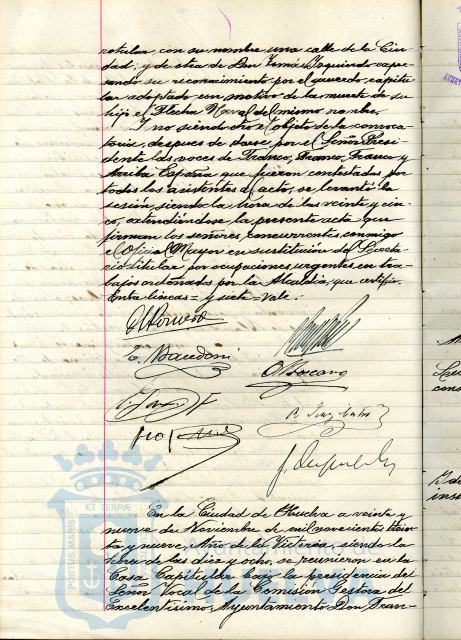 rotular con su nombre una calle de la Ciu-
dad; y de otra de Don Tomás Izquierdo expre-
sando su reconocimiento por el acuerdo capitu-
lar adoptado con motivo de la muerte de su
hijo el Flecha Naval del mismo nombre.
Y no siendo otro el objeto de la convoca-
toria, despues de darse por el Señor Presi-
dente las voces de Franco, Franco, Franco y
Arriba España que fueron contestadas por
todos los asistentes al acto, se levantó la
sesión, siendo la hora de las veinte y cin-
co, extendiéndose la presente acta que
firman los señores concurrentes, conmigo
el Oficial Mayor en sustitución del Secreta-
rio titular por ocupaciones urgentes en tra-
bajos ordenados por la Alcaldia, que certifico.
Entre lineas = y siete = Vale.
PORTUS MARIS
ET TERRÆ
Ayuntamiento de
En la Ciudad de Huelva a veinte y
nueve de Noviembre de mil novecientos trein-
ta y nueve, Año de la Victoria, siendo la
hora de las diez y ocho, se reunieron en la
Casa Capitular bajo la presidencia del
Señor Vocal de la Comisión Gestora del
Excelentísimo Ayuntamiento Don Fran-